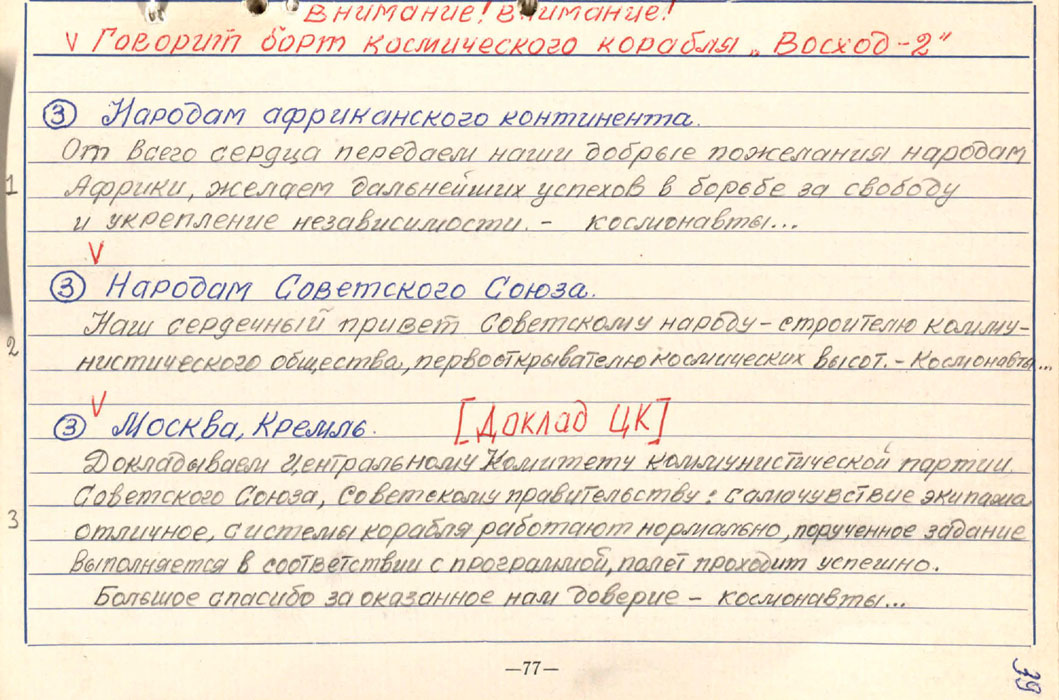 Внимание! Внимание!
V Говорит борт космического корабля „Восход-2"
③ Народам африканского континента.
От всего сердца передаем наши добрые пожелания народам
1 Африки, желаем дальнейших успехов в борьбе за свободу
и укрепление независимости. - космонавты...
V
③ Народам Советского Союза.
Наш сердечный привет Советскому народу - строителю комму-
2 нистического общества, первооткрывателю космических высот. - Космонавты...
V
③ Москва, Кремль. [Доклад ЦК]
Докладываем Центральному Комитету коммунистической партии
Советского Союза, Советскому правительству: самочувствие экипажа
3 отличное, системы корабля работают нормально, порученное задание
выполняется в соответствии с программой, полет проходит успешно.
Большое спасибо за оказанное нам доверие - космонавты...
—77—
39